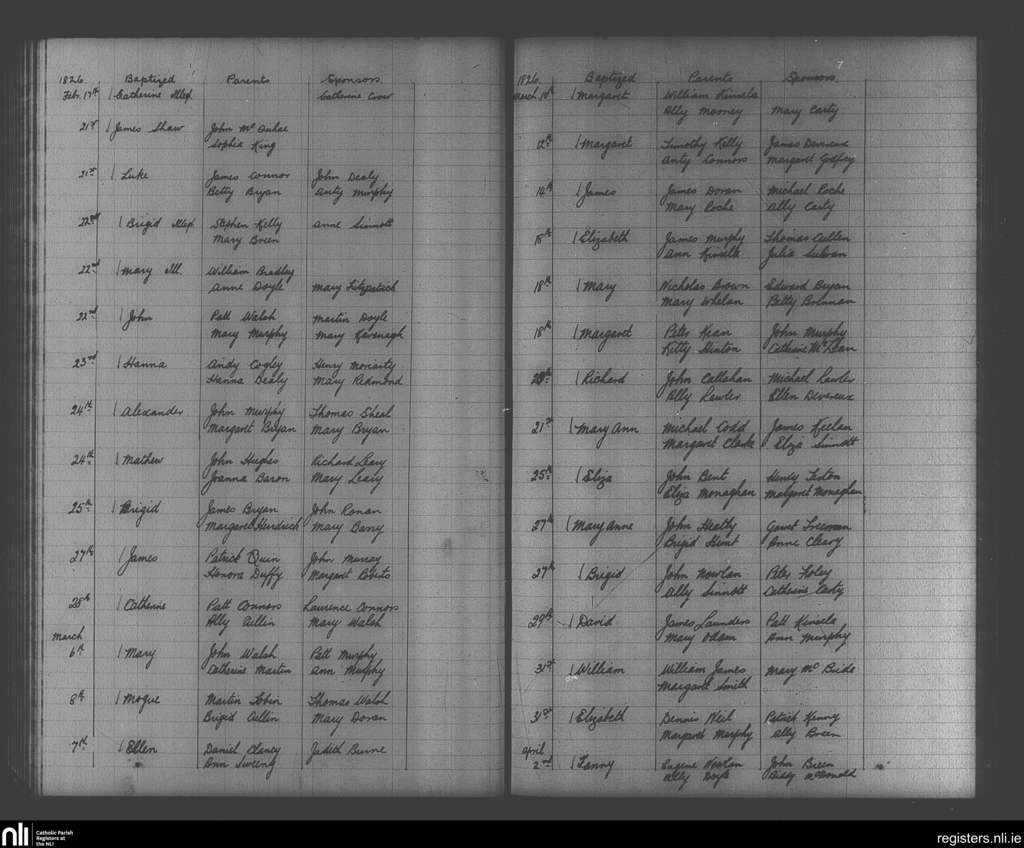 1826. Baptized Parents Sponsors
Feb. 17th 1 Catherine Catherine Crow
21st 1 James Shaw John
Sophia King
21st 1 Luke James Connor John Dealy
Betty Bryan Anty Murphy
22nd 1 Brigid Stephen Kelly Anne Sinnott
Mary Breen
22nd 1 Mary Ill. William Bradley
Anne Doyle Mary Fitzpatrick
22nd 1 John Patt Walsh Martin Doyle
Mary Murphy Mary Kavenagh
23rd 1 Hanna Andy Cogley Henry Moriarty
Hanna Dealy Mary Redmond
24th 1 Alexander John Murphy Thomas Sheal
Margaret Bryan Mary Bryan
24th 1 Mathew John Hughes Richard Leary
Joanna Baron Mary Leary
25th 1 Brigid James Bryan John Ronan
Margaret Mary Barry
27th 1 James Patrick Quin John Murray
Honora Duffy Margaret Roberts
28th 1 Catherine Patt Connors Laurence Connors
Ally Cullin Mary Walsh
March
6th 1 Mary John Walsh Patt Murphy
Catherine Martin Ann Murphy
8th 1 Mogue Martin Tobin Thomas Walsh
Brigid Cullin Mary Doran
7th 1 Ellen Daniel Clancy Judith Burne
Ann Sweeny
1826. Baptized Parents Sponsors.
March 1 Margaret William Kinsela
Ally Mooney Mary Carty
12th 1 Margaret Timothy Kelly James Devereux
Anty Connors Margaret Godfrey
14th 1 James James Doran Michael Roche
Mary Roche Ally Carty
18th 1 Elizabeth James Murphy Thomas Cullen
Ann Kinsella Julia
18th 1 Mary Nicholas Brown Edward Bryan
Mary Whelan Betty
18th 1 Margaret Peter Kean John Murphy
Kitty Hinton Catherine McKean
1 Richard John Callahan Michael Lawler
Ally Lawler Ellen Devereux
21st 1 Mary Ann Michael Codd James Keelan
Margaret Clarke Eliza Sinnott
25th 1 Eliza John Bent Henry
Eliza Monaghan Margaret Monaghan
27th 1 Mary Anne John Heatly Garret Freeman
Brigid Anne Cleary
27th 1 Brigid John Nowlan Peter Foley
Ally Sinnott Catherine Carty
29th 1 David James Saunders Patt Kinsela
Mary Odam Ann Murphy
31st 1 William William James Mary McBride
Margaret Smith
31st 1 Elizabeth Dennis Neil Patrick Kenny
Margaret Murphy Ally Breen
April
2nd 1 Fanny Eugene Nowlan John Breen
Ally Doyle Biddy McDonald
nli Catholic Parish
Registers at
the NLI
registers.nli.ie